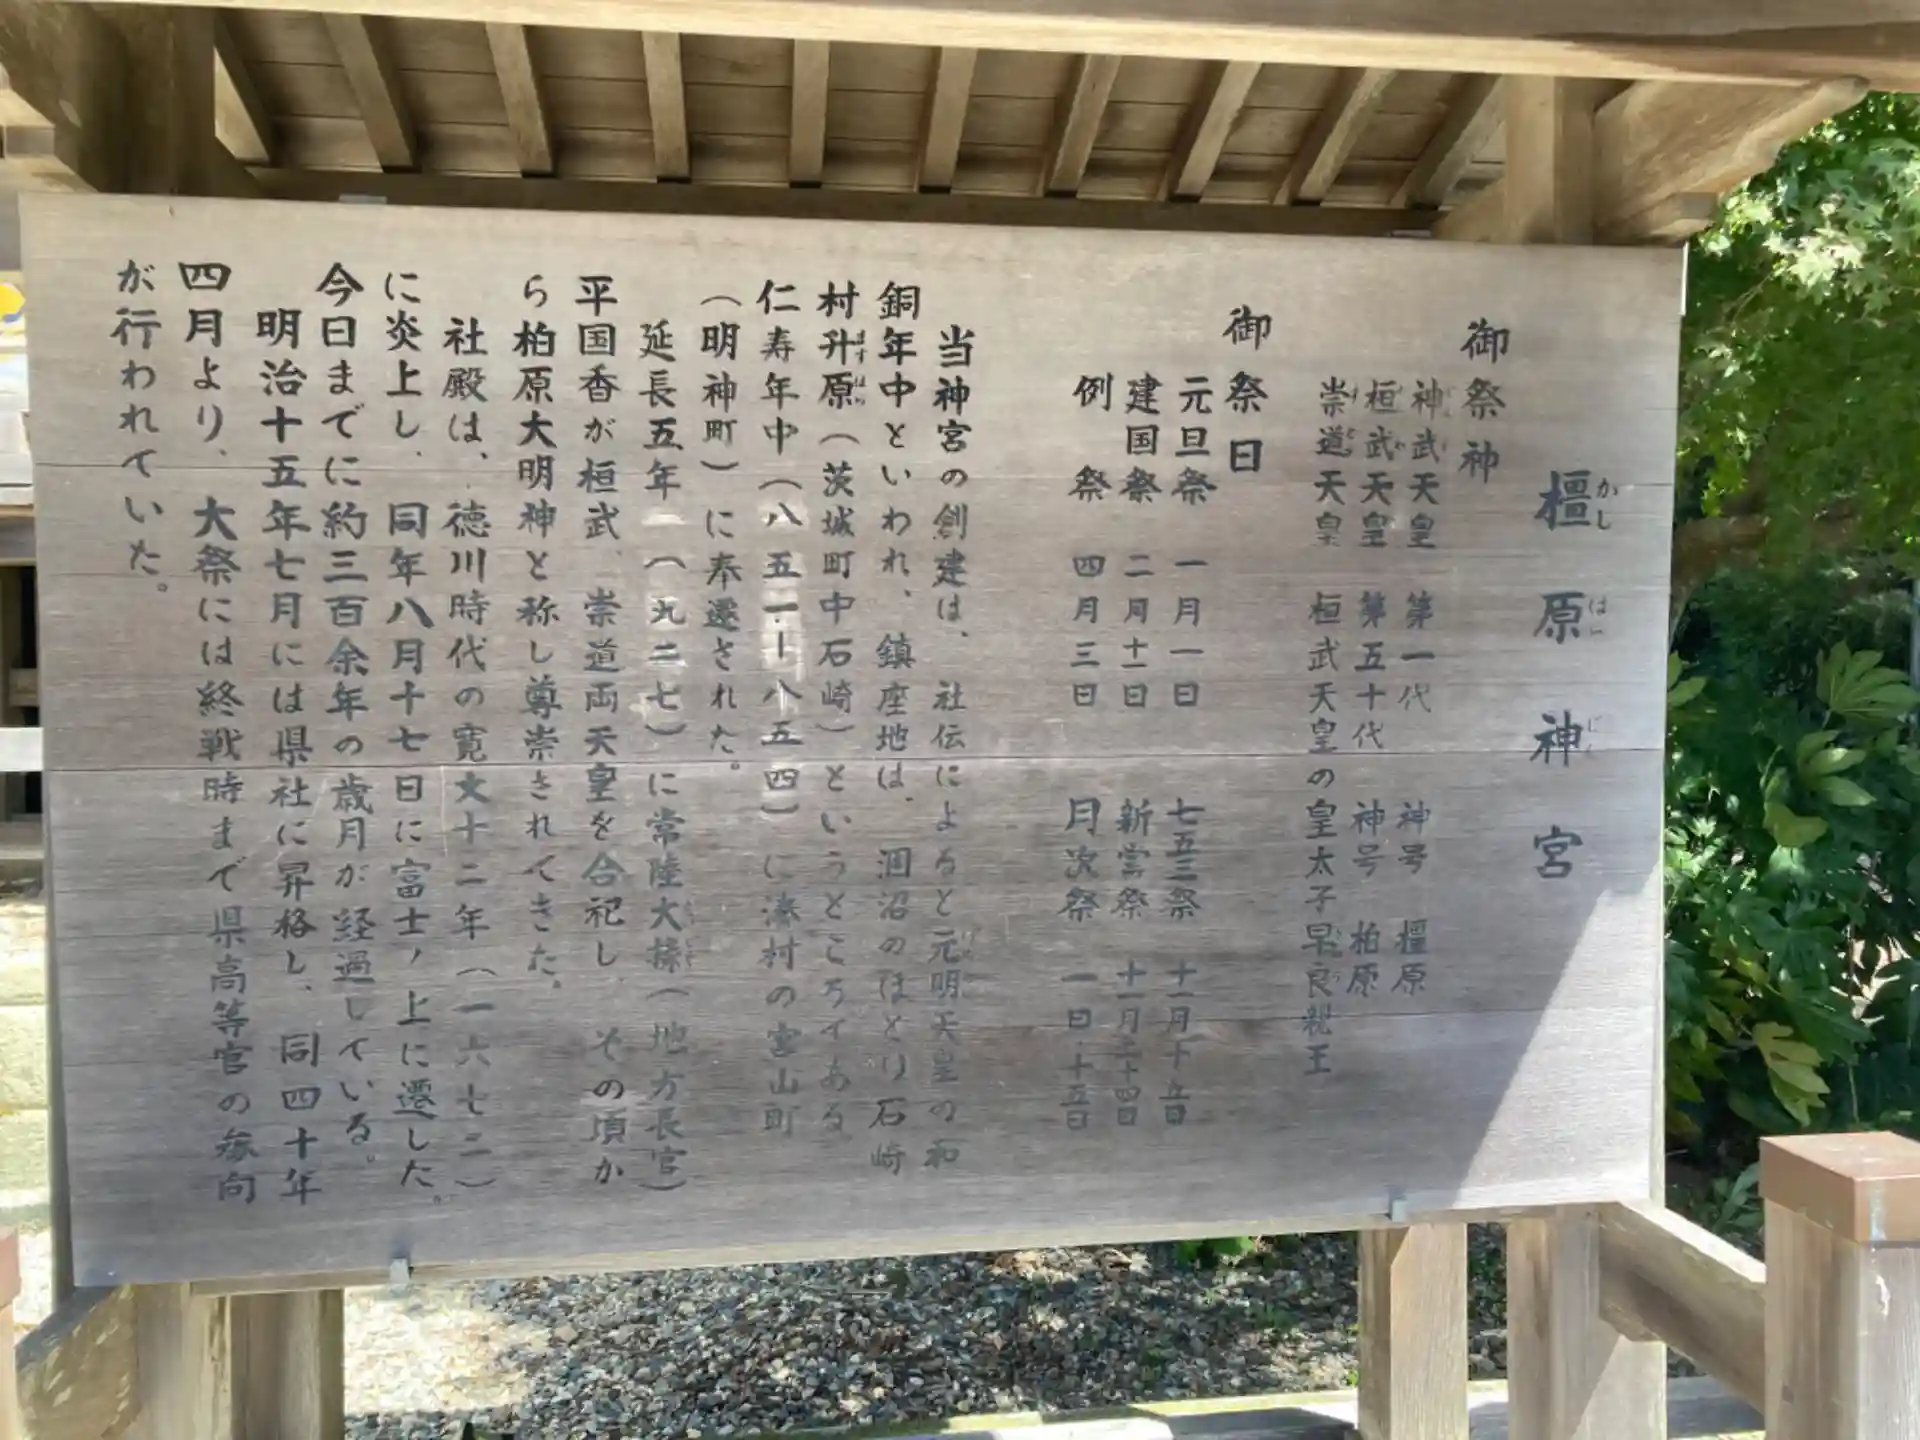 檀原神宮
御祭神
神武天皇 第一代 神号 橿原
桓武天皇 第五十代 神号 柏原
崇道天皇 桓武天皇の皇太子早良親王
御祭日
元旦祭 一月一日 七五三祭 十一月十五日
建国祭 二月十一日 新嘗祭 十一月二十四日
例祭 四月三日 月次祭 一日・十五日
当神宮の創建は、社伝によると元明天皇の和
銅年中といわれ、鎮座地は、涸沼のほとり石崎
村升原(茨城町中石崎)というところである
仁寿年中(八五一ー八五四)に湊村の宮山町
(明神町)に奉遷された。
延長五年(九二七)に常陸大掾(地方長官)
平国香が桓武、崇道両天皇を合祀し、その頃か
ら柏原大明神と称し尊崇されてきた。
社殿は、徳川時代の寛文十二年(一六七二)
に炎上し、同年八月十七日に富士ノ上に遷した。
今日までに約三百余年の歳月が経過している。
明治十五年七月には県社に昇格し、同四十年
四月より、大祭には終戦時まで県高等官の参向
が行われていた。